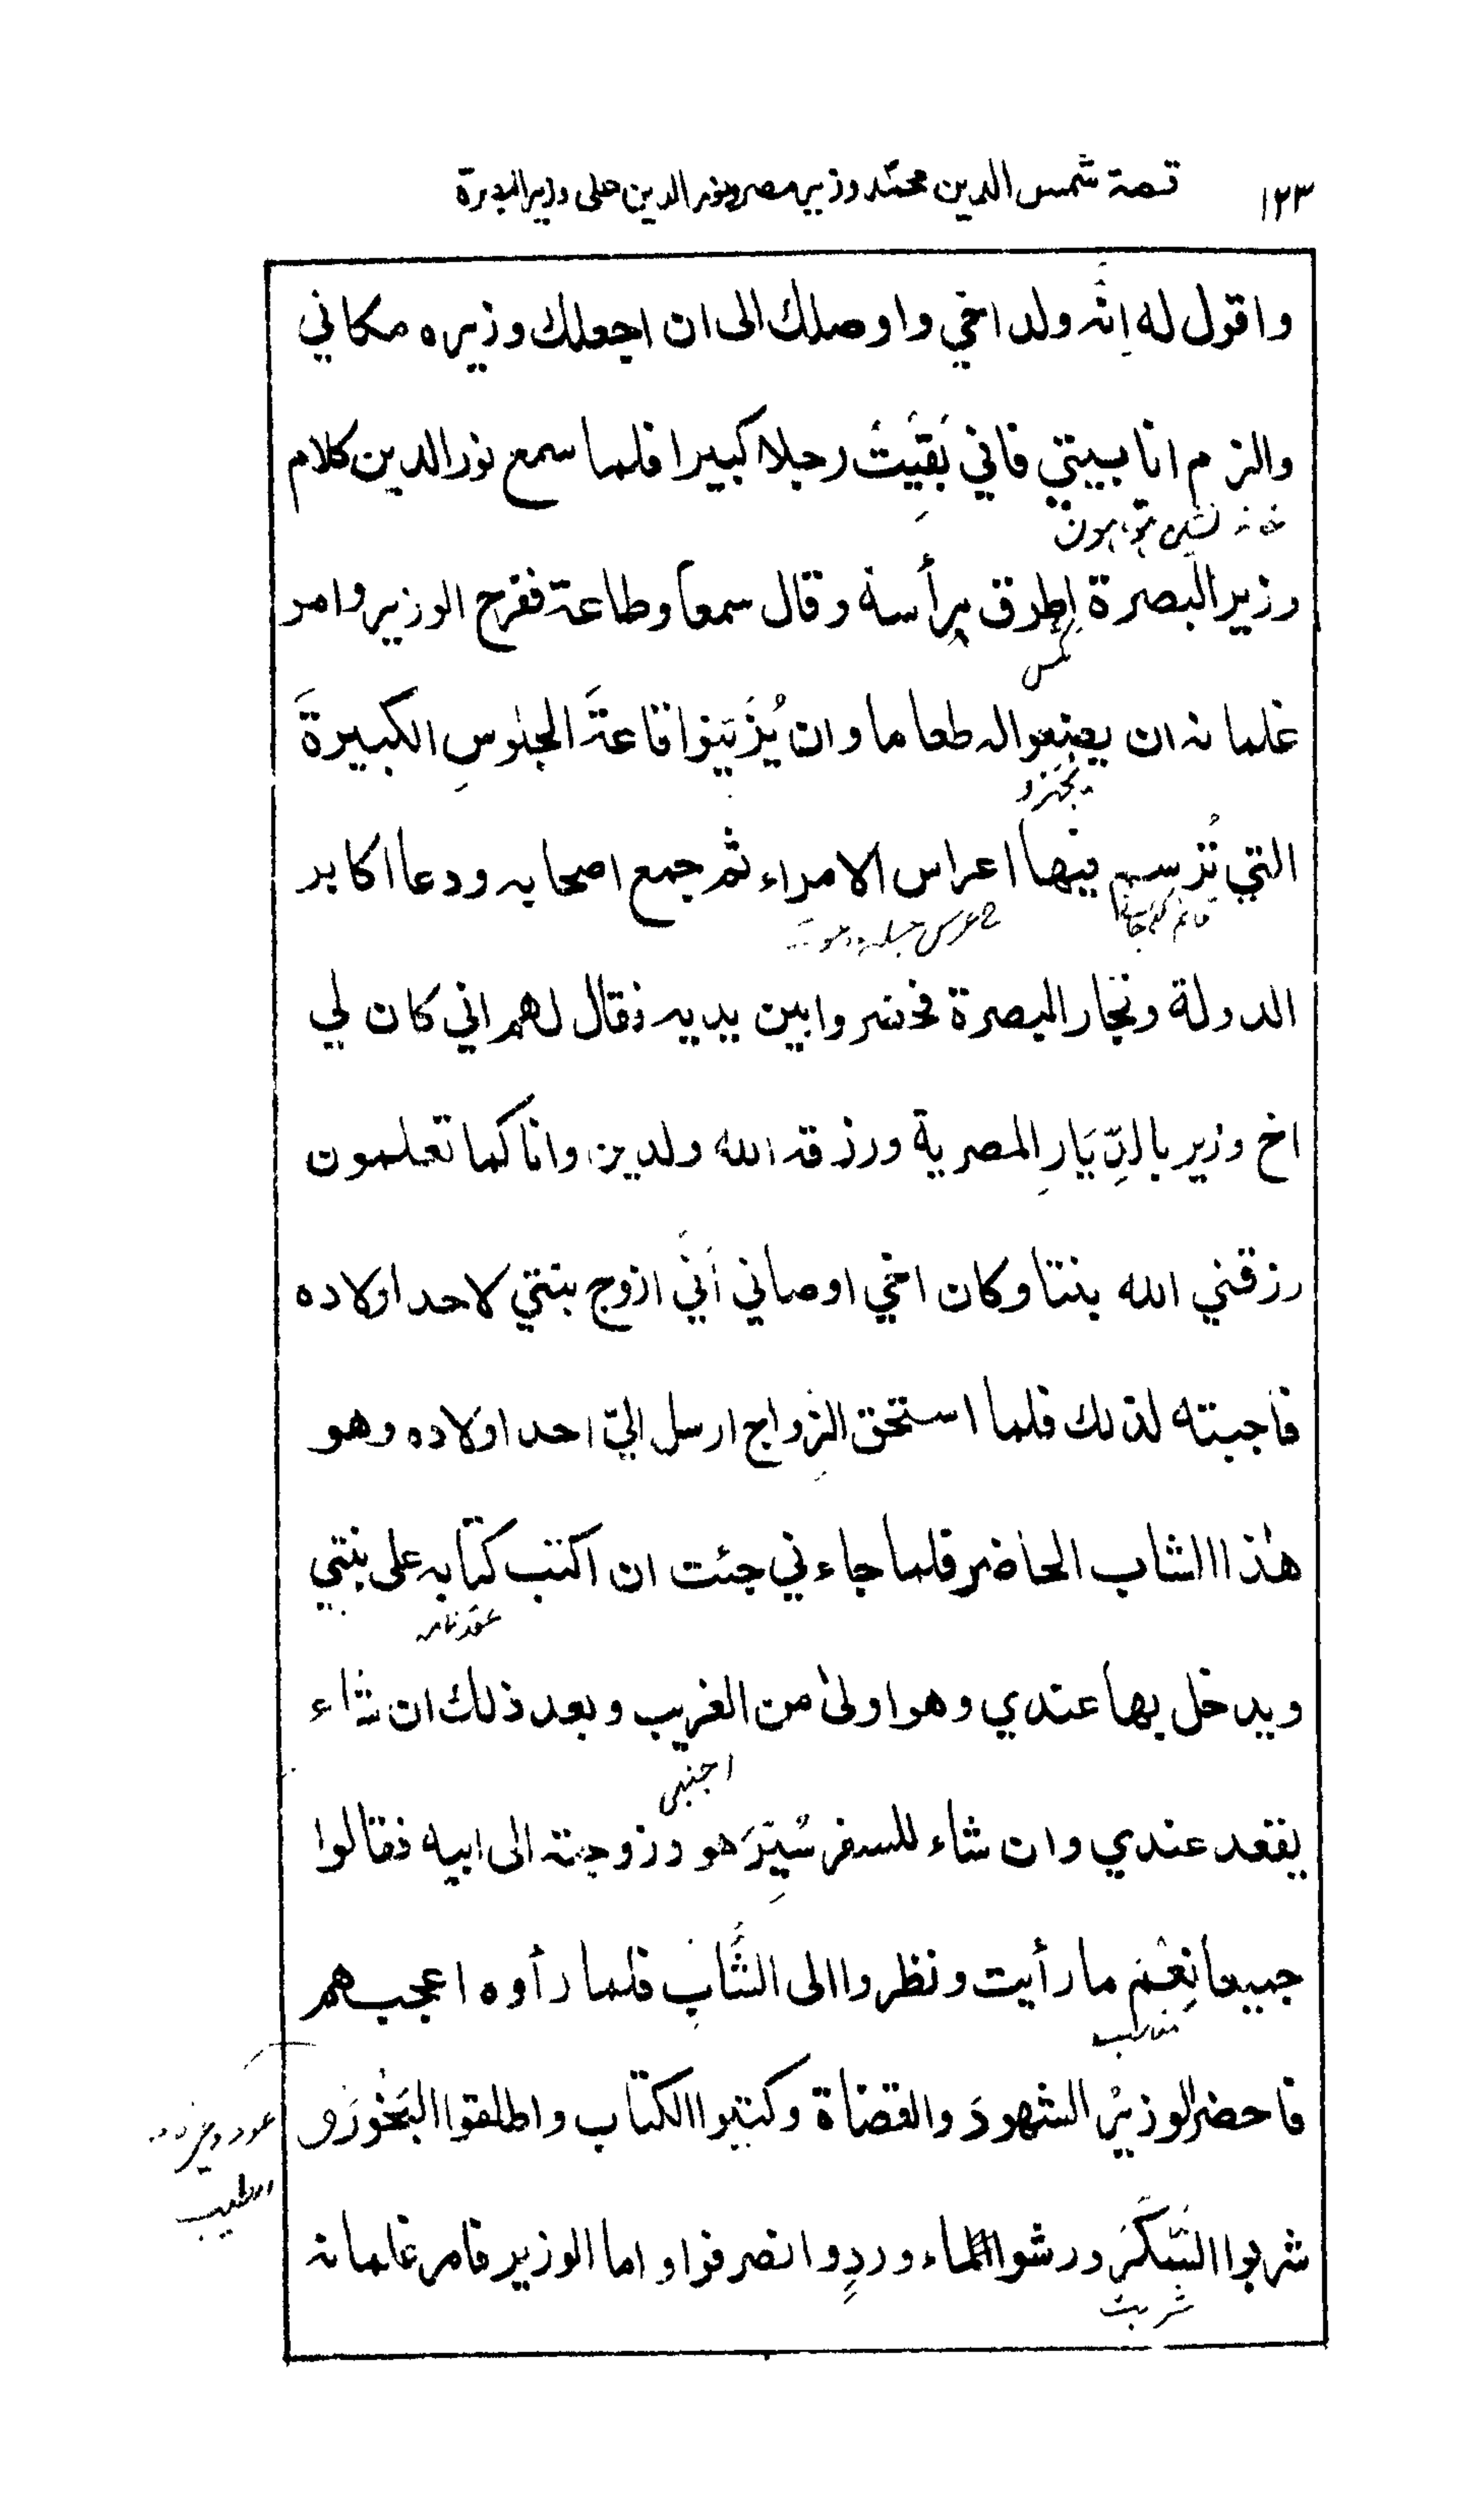 ١٢٣ قصة شمس الدين محمّد وزير مصر ونور الدين على وزير البصرة
واقول له اِنَّه ولد اخي واوصلك الى ان اجعلك وزيره مكاني
والزم انا بيتي فاني بَقَيِّتُ رجلا كبيرا فلما سمع نور الدين كلام
وزير البصرة اطرق برأسة وقال سمعا وطاعة ففرح الوزير وامر
غلمانه ان يصنعوا له طعاما وان يُزَيّنوا قاعةَ الجلوسِ الكبيرةَ
التي تُرسم فيها اعراس الامراء ثم جمع اصحابه ودعا اكابر
الدولة وتجّار البصرة فحضروا بين يديه فقال لهم اني كان لي
اخ وزير بالدِّيَارِ المصرية ورزقه الله ولدين وانا كما تعلمون
رزقني الله بنتا وكان اخي اوصاني اَنّي ازوج بنتي لاحد اولاده
فاجبته لذلك فلما استحق الزِواج ارسل اليّ احد اولاده وهو
هٰذا الشاب الحاضر فلما جاءني جئت ان اكتب كتابه على بنتي
عقدنامه
ويدخل بها عندي وهو اولىٰ من الغريب وبعد ذلك ان شاء
اجنبى
يقعد عندي وان شاء للسفر سُيِّرَ هو وزوجته الى ابيه فقالوا
جميعا نِعْمَ ما رأيت ونظروا الى الشَّابِ فلما رأوه اعجبهم
فاحضر الوزيرُ الشهودَ والقضاة وكتبوا الكتاب واطلقوا البَخُورَ و
شربوا السُّكَّرَ ورشوا الماء وردِ وانصرفوا واما الوزير فامر غلمانه
شربت